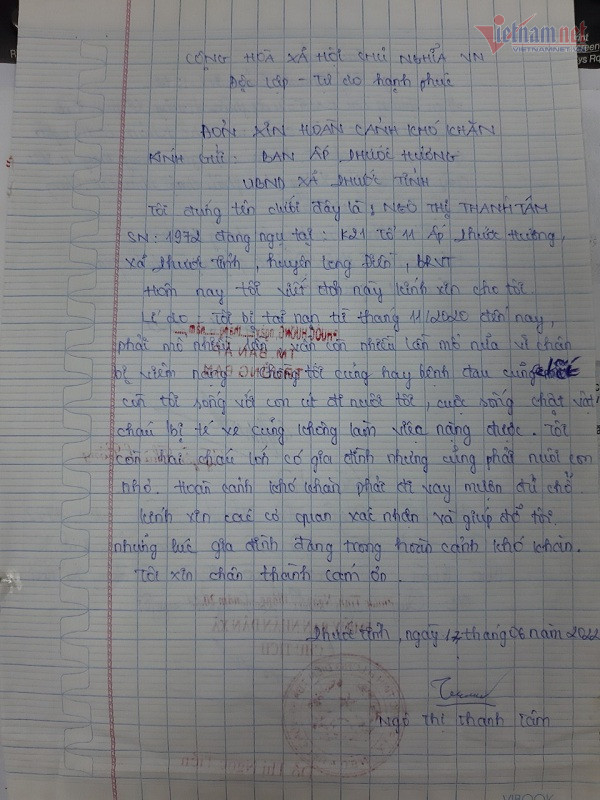 Vietnamnet
VIETNAMNET.VN
CỘNG HÒA XÃ HỘI CHỦ NGHĨA VN
Độc lập - Tự do hạnh phúc
ĐƠN XIN HOÀN CẢNH KHÓ KHĂN
KÍNH GỬI: BAN ẤP PHƯỚC HƯƠNG
UBND XÃ PHƯỚC TỈNH
Tôi đứng tên dưới đây là: NGÔ THỊ THANH TÂM
SN: 1972 đang ngụ tại: K21 Tổ 11 Ấp Phước Hương,
xã Phước Tỉnh, huyện Long Điền, BRVT
Hôm nay tôi viết đơn này kính xin cho tôi.
Lí do: Tôi bị tai nạn từ tháng 11/2020 đến nay,
phải mổ nhiều lần vẫn còn nhiều lần mổ nữa vì chân
bị viêm nặng chồng tôi cũng hay bệnh đau cũng
còn tôi sống với con út đi nuôi tôi, cuộc sống chật vật
cháu bị té xe cũng không làm việc nặng được. Tôi
còn hai cháu lớn có gia đình nhưng cũng phải nuôi con
nhỏ. Hoàn cảnh khó khăn phải đi vay mượn đủ chỗ.
Kính xin các cơ quan xác nhận và giúp đỡ tôi
những lúc gia đình đang trong hoàn cảnh khó khăn.
Tôi xin chân thành cảm ơn.
Phước Tỉnh, ngày 17 tháng 06 năm 2022
Ngô Thị Thanh Tâm